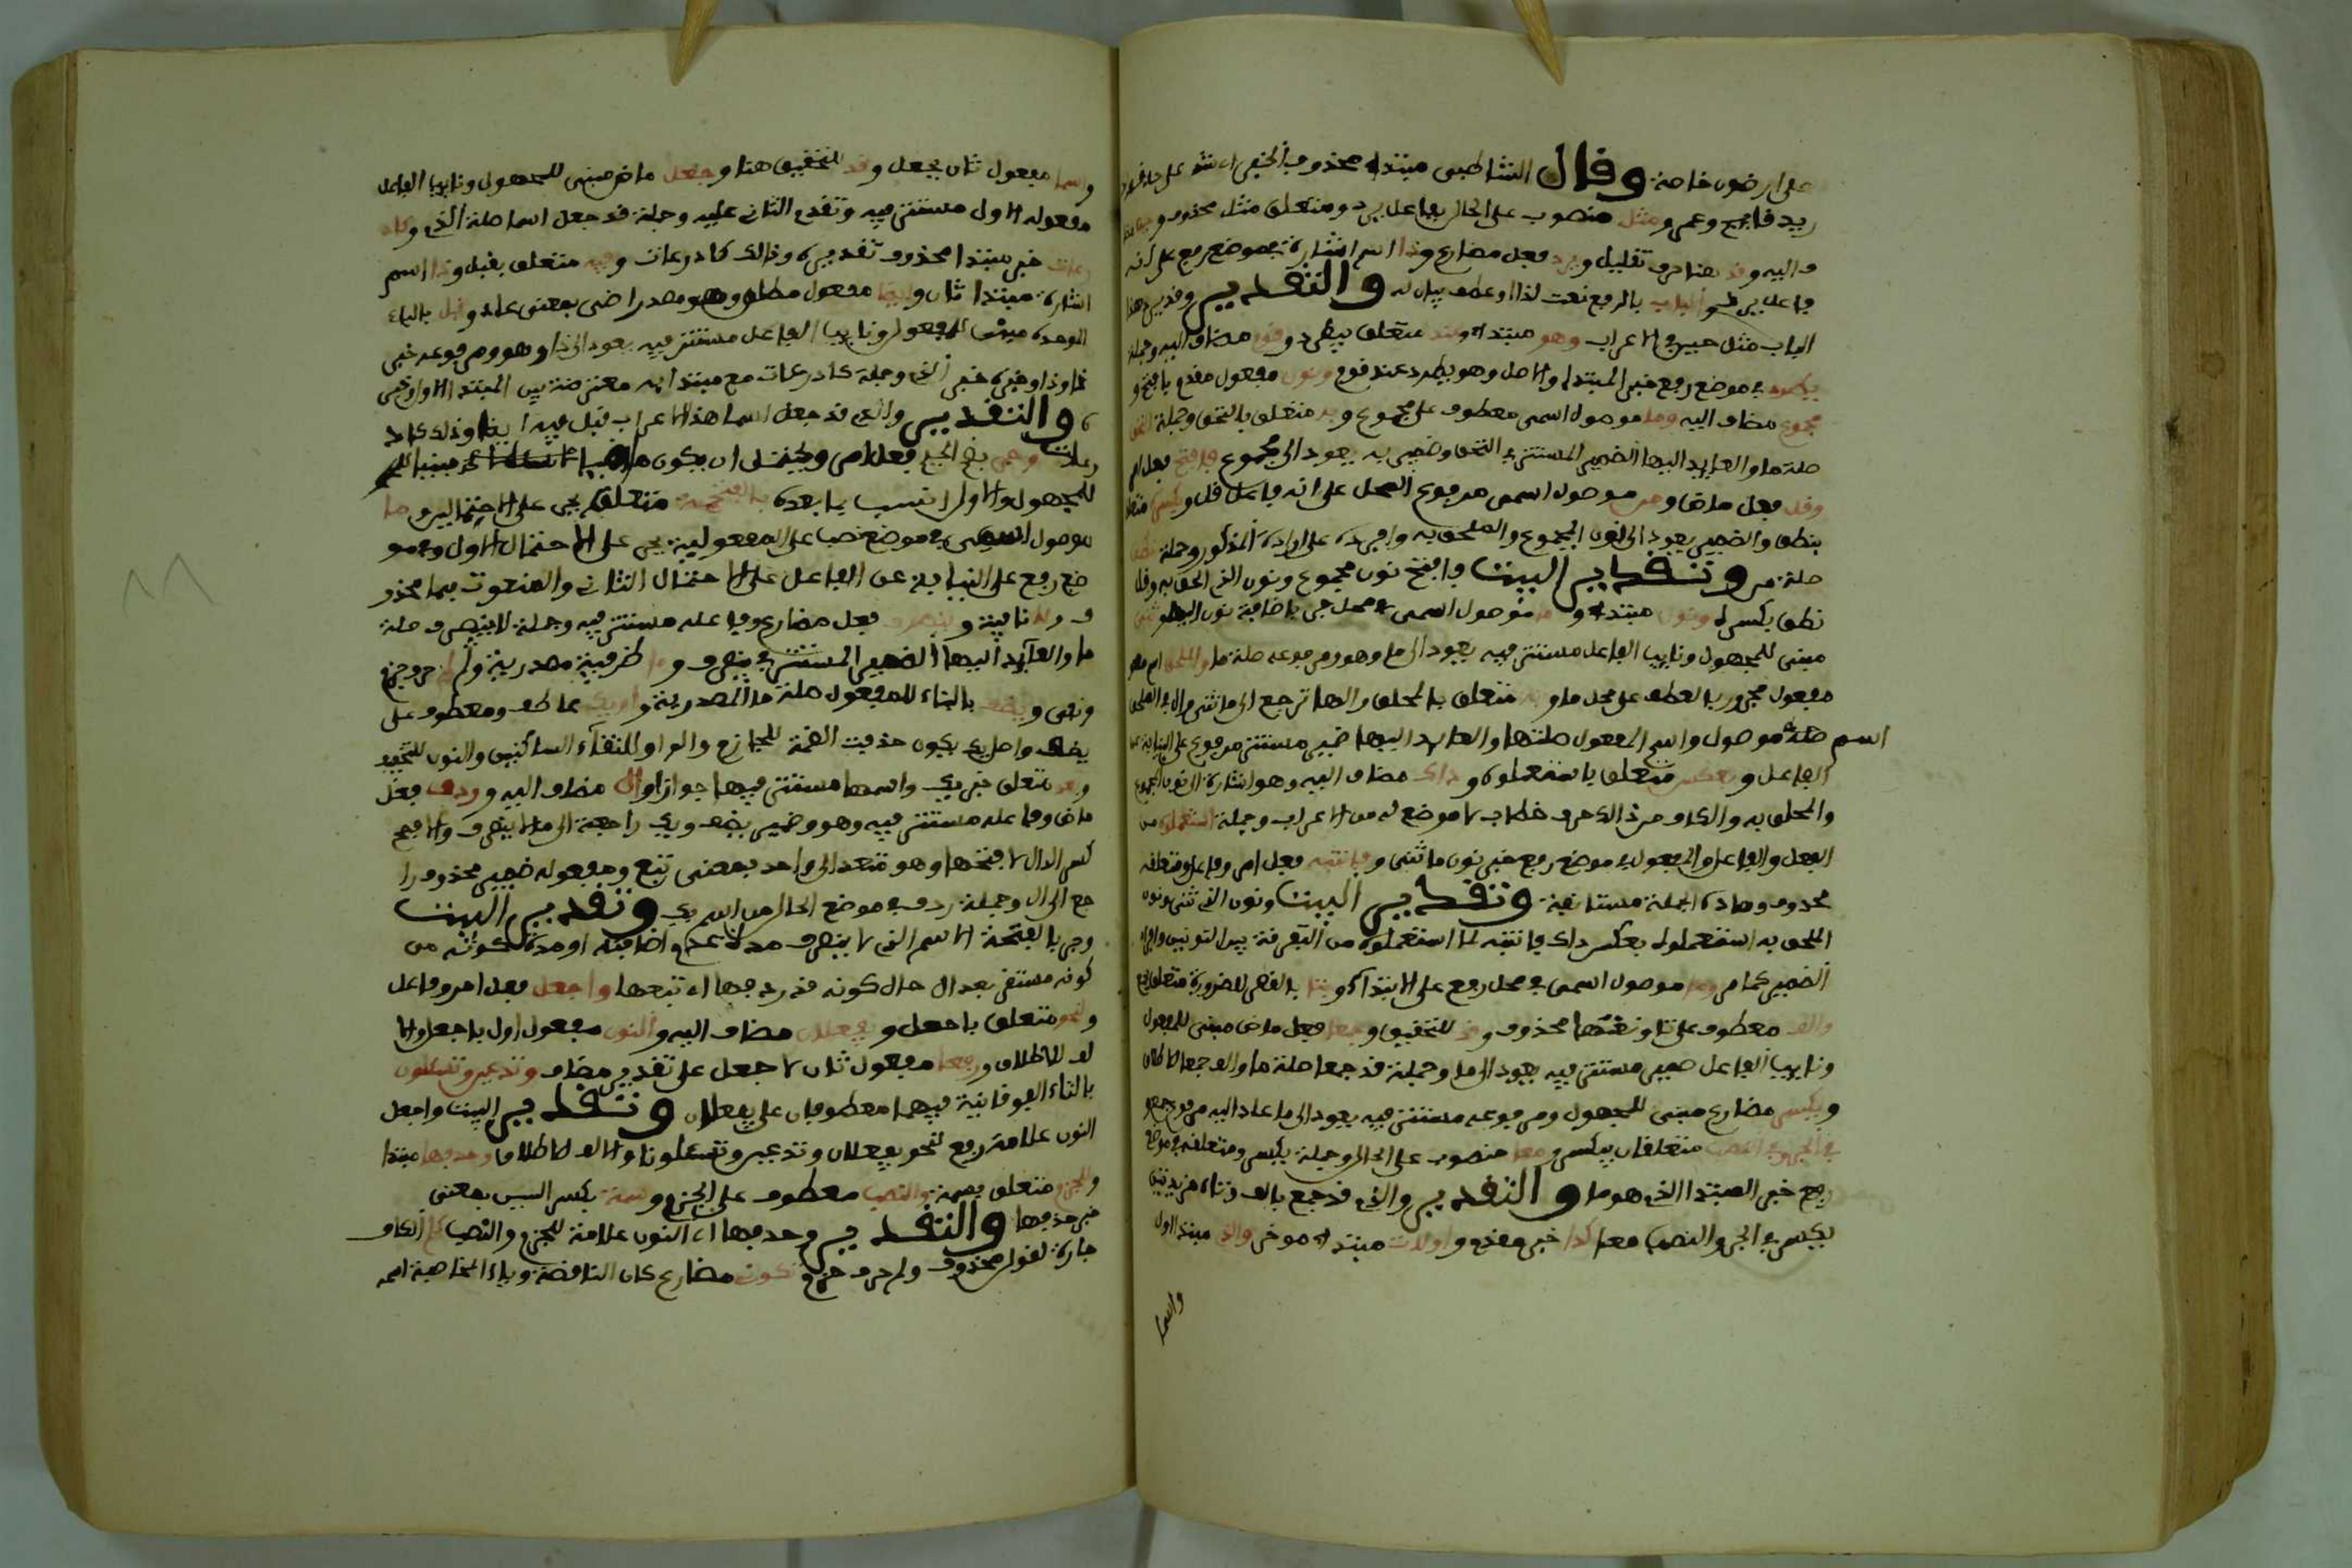 على ارضون خاصة وقال الشاطبي مبتدا محذوف الخبر اي
زيد قايم وعمرو ومثل منصوب على الحال بفاعل يرد ومتعلق مثل محذوف
واليه وقد هنا حرف تقليل ويرد فعل مضارع وذا اسم اشارة في موضع رفع على انه
فاعل يرد والباب بالرفع نعت لذا او عطف بيان له والتقدير وقد يرد هذا
الباب مثل حين في الاعراب وهو مبتدا وعند متعلق بيطرد وقوم مضاف اليه وجملة
يطرد في موضع رفع خبر المبتدا والاصل وهو يطرد عند قوم ونون مفعول مقدم بافتح و
مجموع مضاف اليه وما موصول اسمي معطوف على مجموع وبه متعلق بالتحق وجملة التحق
صلة ما والعايد اليها الضمير المستتر في التحق وضمير به يعود الى مجموع فافتح فعل امر
وقل فعل ماض ومن موصول اسمي مرفوع المحل على انه فاعل قل وبكسره متعلق
بنطق والضمير يعود الى نون المجموع والملحق به وافرده على ارادة المذكور وجملة نطق
صلة من وتقدير البيت فافتح نون مجموع ونون الذي التحق به وقل من
نطق بكسره ونون مبتدا وما موصول اسمي في محل جر باضافة نون اليه وثني
مبني للمجهول ونايب الفاعل مستتر فيه يعود الى ما وهو ومرفوعه صلة ما والملحق اسم
مفعول مجرور بالعطف على محل ما وبه متعلق بالملحق والها ترجع الى ما ثني وال في الملحق
اسم موصول واسم المفعول صلتها والعايد اليها ضمير مستتر مرفوع على النيابة عن
الفاعل وبعكس متعلق باستعملوه وذاك مضاف اليه وهو اشارة الى نون المجموع
والملحق به والكاف من ذاك حرف خطاب لا موضع له من الاعراب وجملة استعملوه من
الفعل والفاعل والمفعول في موضع رفع خبر نون ما ثني وفانتبه فعل امر وفاعل ومتعلقه
محذوف وهاذه الجملة مستانفة وتقدير البيت ونون الذي ثني ونون
الملحق به استعملوه بعكس ذاك فانتبه لما استعملوه من التفرقة بين النونين وافراد
الضمير كما مر وما موصول اسمي في محل رفع على الابتدا وبتا بالقصر للضرورة متعلق بجمع
والف معطوف على تا ونعتها محذوف وقد للتحقيق وجمعا فعل ماض مبني للمفعول
ونايب الفاعل ضمير مستتر فيه يعود الى ما وجملة قد جمعا صلة ما والف جمعا للاطلاق
ويكسر مضارع مبني للمجهول ومرفوعه مستتر فيه يعود الى ما عاد اليه مرفوع جمع
في الجر وفي النصب متعلقان بيكسر ومعا منصوب على الحال وجملة يكسر ومتعلقه في موضع
رفع خبر المبتدا الذي هو ما والتقدير والذي قد جمع بالف وتاء مزيدتين
يكسر في الجر والنصب معا كذا خبر مقدم واولات مبتدا موخر والذي مبتدا اول
واسما
واسما مفعول ثان بجعل وقد للتحقيق هنا وجعل ماض مبني للمجهول ونايب الفاعل
مفعوله الاول مستتر فيه وتقدم الثاني عليه وجملة قد جعل اسما صلة الذي وكاذ
رعات خبر مبتدا محذوف تقديره وذالك كاذرعات وفيه متعلق بقبل وذا اسم
اشارة مبتدا ثان وايضا مفعول مطلق وهو مصدر اض بمعنى عاد وقبل بالباء
الموحدة مبني للمفعول ونايب الفاعل مستتر فيه يعود الى ذا وهو ومرفوعه خبر
ذا وذا وخبره خبر الذي وجملة كاذرعات مع مبتدايه معترضة بين المبتدا الاول وخبر
ه والتقدير والذي قد جعل اسما هذا الاعراب قبل فيه ايضا وذلك كاذ
رعات وجر بفتح الجيم فعل امر ويحتمل ان يكون ماضيا مبنيا
للمجهول والاول انسب بما بعده بالفتحة متعلق بجر على الاحتمالين وما
موصول اسمي في موضع نصب على المفعولية بجر على الاحتمال الاول وفي مو
ضع رفع على النيابة عن الفاعل على الاحتمال الثاني والمنعوت بما محذو
ف ولا نافية وينصرف فعل مضارع وفاعله مستتر فيه وجملة لا ينصرف صلة
ما والعايد اليها الضمير المستتر في ينصرف وما ظرفية مصدرية ولم حرف جزم
ونفي ويضف بالبناء للمفعول صلة ما المصدرية او يك عاطف ومعطوف على
يضف واصل يك يكون حذفت الضمة للجازم والواو لالتقاء الساكنين والنون للتخفيف
وبعد متعلق خبر يك واسمها مستتر فيها جوازا وال مضاف اليه وردف فعل
ماض وفاعله مستتر فيه وهو وضمير يضف ويك راجعة الى ما لا ينصرف والافصح
كسر الدال لا فتحها وهو متعد الى واحد بمعنى تبع ومفعوله ضمير محذوف را
جع الى ال وجملة ردف في موضع الحال من اسم يك وتقدير البيت
وجر بالفتحة الاسم الذي لا ينصرف مدة عدم اضافته او مدة كونه من
كونه مستقر بعد ال حال كونه قد ردفها اي تبعها واجعل فعل امر وفاعل
ولنحو متعلق باجعل ويفعلان مضاف اليه والنون مفعول اول باجعل والا
لف للاطلاق ورفعا مفعول ثان لاجعل على تقدير مضاف وتدعين وتسئلون
بالتاء الفوقانية فيهما معطوفان على يفعلان وتقدير البيت واجعل
النون علامة رفع لنحو يفعلان وتدعين وتسئلونا والالف للاطلاق وحذفها مبتدا
وللجزم متعلق بسمة والنصب معطوف على الجزم وسمة بكسر السين بمعنى
خبر حذفها والتقدير وحذفها اي النون علامة للجزم والنصب كلم الكاف
جارة لقول محذوف ولم حرف جزم تكوني مضارع كان الناقصة وياء المخاطبة اسم